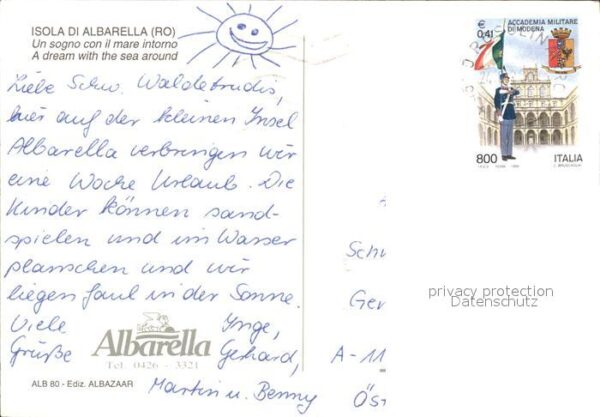 ISOLA DI ALBARELLA (RO)
Un sogno con il mare intorno
A dream with the sea around
Liebe Schw. Waldetrudis,
hier auf der kleinen Insel
Albarella verbringen wir
eine Woche Urlaub. Die
Kinder können sand-
spielen und im Wasser
planschen und wir
liegen faul in der Sonne.
Viele Inge,
Grüße Gerhard,
Martin u. Benny
Albarella
Tel. 0426 - 3321
ALB 80 - Ediz. ALBAZAAR
€ 0,41
ACCADEMIA MILITARE
DI MODENA
800 ITALIA
Schw
Ger
A-11
ÖST
privacy protection
Datenschutz